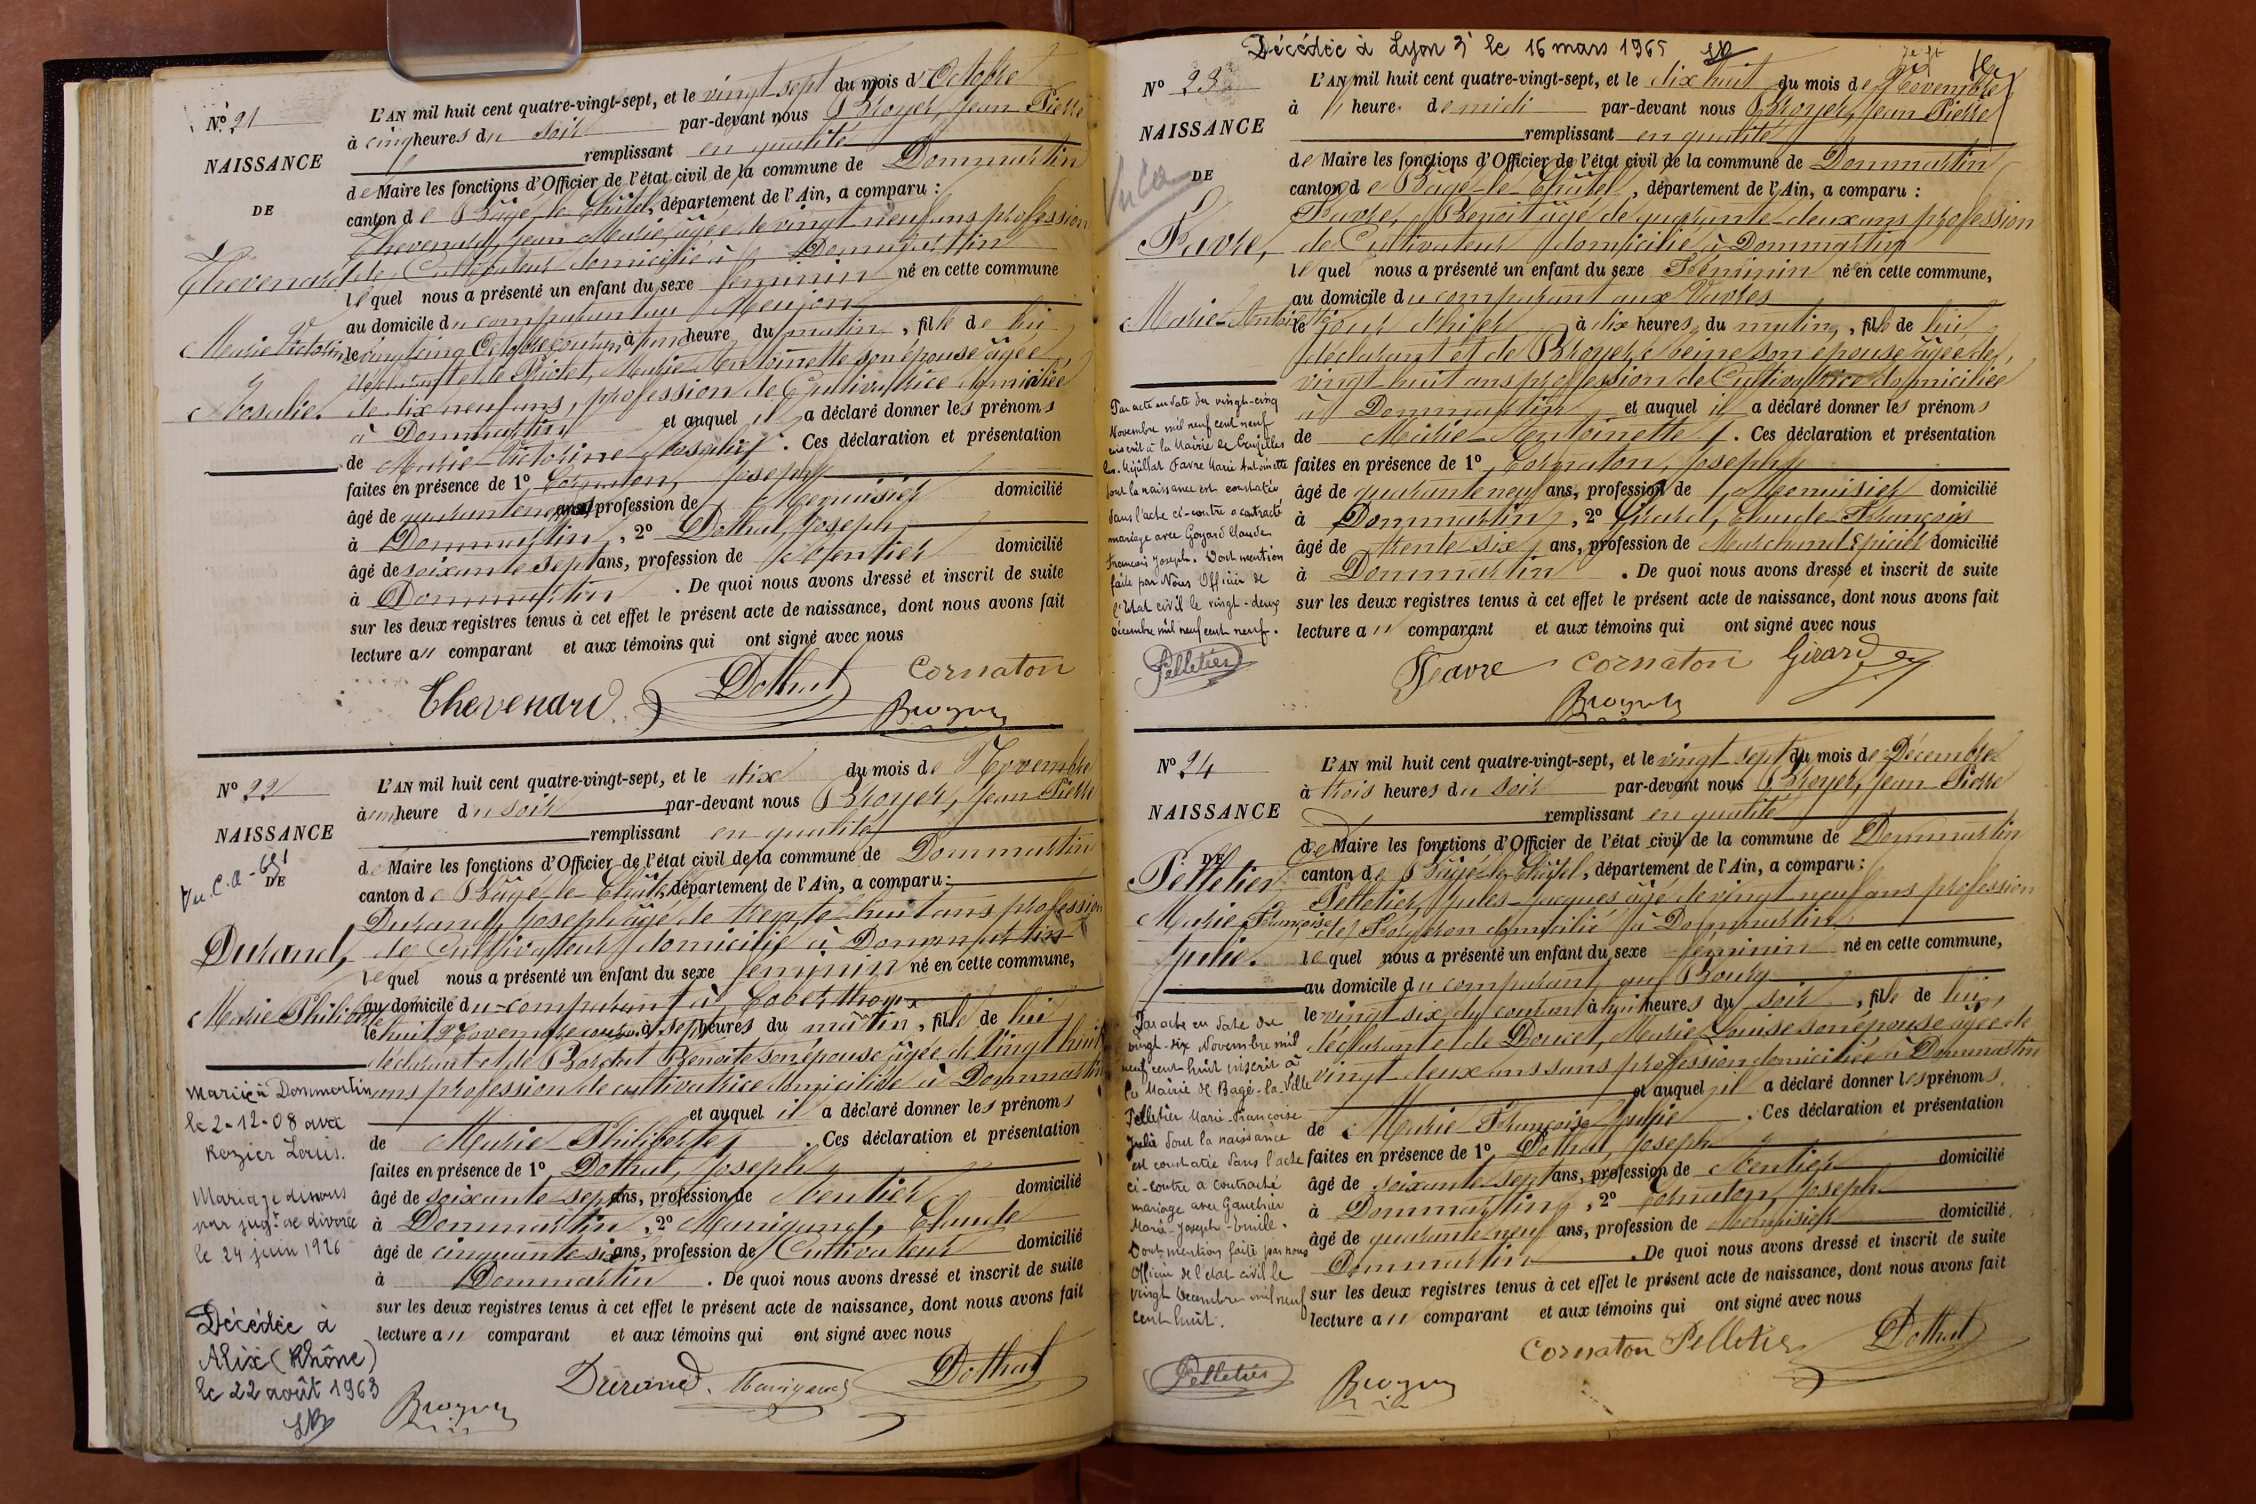 No 21
NAISSANCE
DE
Thevenard
Marie Victorine
Rosalie.
L'AN mil huit cent quatre-vingt-sept, et le vingt sept du mois d'Octobre
à cinq heures du soir par-devant nous Broyer, Jean Pierre
remplissant en qualité
de Maire les fonctions d'Officier de l'état civil de la commune de Dommartin
canton de Bâgé-le-Châtel, département de l'Ain, a comparu :
Thevenard, Jean Marie, âgé de vingt neuf ans profession
de Cultivateur domicilié à Dommartin
lequel nous a présenté un enfant du sexe féminin né en cette commune
au domicile du comparant au
le vingt cinq Octobre courant, à heure du matin, fille de lui
déclarant et de Marie Antoinette son épouse âgée
de dix neuf ans, profession de Cultivatrice domiciliée
à Dommartin et auquel il a déclaré donner les prénoms
de Marie-Victorine Rosalie. Ces déclaration et présentation
faites en présence de 1o Cornaton, Joseph
âgé de quarante neuf ans, profession de Menuisier domicilié
à Dommartin, 2o Dothat, Joseph,
âgé de soixante sept ans, profession de Rentier domicilié
à Dommartin. De quoi nous avons dressé et inscrit de suite
sur les deux registres tenus à cet effet le présent acte de naissance, dont nous avons fait
lecture au comparant et aux témoins qui ont signé avec nous
Thevenard Dothat Cornaton
Broyer
No 22
NAISSANCE
DE
Durand,
Marie Philiberte
Mariée à Dommartin
le 2-12-08 avec
Rozier Louis.
Mariage dissous
par jugt de divorce
le 24 juin 1926
Décédée à
Alix (Rhône)
le 22 août 1963
L'AN mil huit cent quatre-vingt-sept, et le dix du mois de Novembre
à une heure du soir par-devant nous Broyer, Jean Pierre
remplissant en qualité
de Maire les fonctions d'Officier de l'état civil de la commune de Dommartin
canton de Bâgé-le-Châtel, département de l'Ain, a comparu :
Durand, Joseph âgé de trente huit ans profession
de Cultivateur domicilié à Dommartin
lequel nous a présenté un enfant du sexe féminin né en cette commune,
au domicile du comparant à
le huit Novembre courant à sept heures du matin, fille de lui
déclarant et de Benoite son épouse âgée de vingt huit
ans profession de cultivatrice domiciliée à Dommartin
et auquel il a déclaré donner les prénoms
de Marie Philiberte. Ces déclaration et présentation
faites en présence de 1o Dothat, Joseph
âgé de soixante sept ans, profession de Rentier domicilié
à Dommartin, 2o Manigand, Claude
âgé de cinquante six ans, profession de Cultivateur domicilié
à Dommartin. De quoi nous avons dressé et inscrit de suite
sur les deux registres tenus à cet effet le présent acte de naissance, dont nous avons fait
lecture au comparant et aux témoins qui ont signé avec nous
Durand Manigand Dothat
Broyer
Décédée à Lyon 3e le 16 mars 1965
No 23
NAISSANCE
DE
Favre,
Marie-Antoinette
Par acte en date du vingt-cinq
Novembre mil neuf cent neuf
inscrit à la Mairie de
Favre Marie Antoinette
dont la naissance est constatée
dans l'acte ci-contre a contracté
mariage avec Goyard Claude
François Joseph. Dont mention
faite par Nous Officier de
l'Etat civil le vingt-deux
décembre mil neuf cent neuf.
Pelletier
L'AN mil huit cent quatre-vingt-sept, et le dix huit du mois de Novembre
à heure de midi par-devant nous Broyer, Jean Pierre
remplissant en qualité
de Maire les fonctions d'Officier de l'état civil de la commune de Dommartin
canton de Bâgé-le-Châtel, département de l'Ain, a comparu :
Favre, Benoit âgé de quarante-deux ans profession
de Cultivateur domicilié à Dommartin
lequel nous a présenté un enfant du sexe Féminin né en cette commune,
au domicile du comparant aux Vavres
le jour d'hier à dix heures du matin, fille de lui
déclarant et de Broyer, Reine son épouse âgée de
vingt huit ans profession de Cultivatrice domiciliée
à Dommartin et auquel il a déclaré donner les prénoms
de Marie-Antoinette. Ces déclaration et présentation
faites en présence de 1o Cornaton, Joseph
âgé de quarante neuf ans, profession de Menuisier domicilié
à Dommartin, 2o Girard, Claude-François
âgé de trente six ans, profession de Marchand Epicier domicilié
à Dommartin. De quoi nous avons dressé et inscrit de suite
sur les deux registres tenus à cet effet le présent acte de naissance, dont nous avons fait
lecture au comparant et aux témoins qui ont signé avec nous
Favre Cornaton Girard
Broyer
No 24
NAISSANCE
DE
Pelletier
Marie Françoise
Julie.
Par acte en date du
vingt-six Novembre mil
neuf cent huit inscrit à
la Mairie de Bagé-la-Ville
Pelletier Marie-Françoise
Julie dont la naissance
est constatée dans l'acte
ci-contre a contracté
mariage avec Gauthier
Marie-Joseph-Emile.
Dont mention faite par nous
Officier de l'état civil le
vingt Décembre mil neuf
cent huit.
Pelletier
L'AN mil huit cent quatre-vingt-sept, et le vingt sept du mois de Décembre
à trois heures du soir par-devant nous Broyer, Jean Pierre
remplissant en qualité
de Maire les fonctions d'Officier de l'état civil de la commune de Dommartin
canton de Bâgé-le-Châtel, département de l'Ain, a comparu :
Pelletier, Jules-Jacques âgé de vingt neuf ans profession
de Forgeron domicilié à Dommartin
lequel nous a présenté un enfant du sexe féminin né en cette commune,
au domicile du comparant au Bourg
le vingt six du courant à huit heures du soir, fille de lui
déclarant et de Douset, Marie Louise son épouse âgée de
vingt-deux ans sans profession domiciliée à Dommartin
et auquel il a déclaré donner les prénoms
de Marie Françoise Julie. Ces déclaration et présentation
faites en présence de 1o Dothat, Joseph
âgé de soixante sept ans, profession de Rentier domicilié
à Dommartin, 2o Cornaton, Joseph
âgé de quarante neuf ans, profession de Menuisier domicilié
Dommartin. De quoi nous avons dressé et inscrit de suite
sur les deux registres tenus à cet effet le présent acte de naissance, dont nous avons fait
lecture au comparant et aux témoins qui ont signé avec nous
Cornaton Pelletier Dothat
Broyer